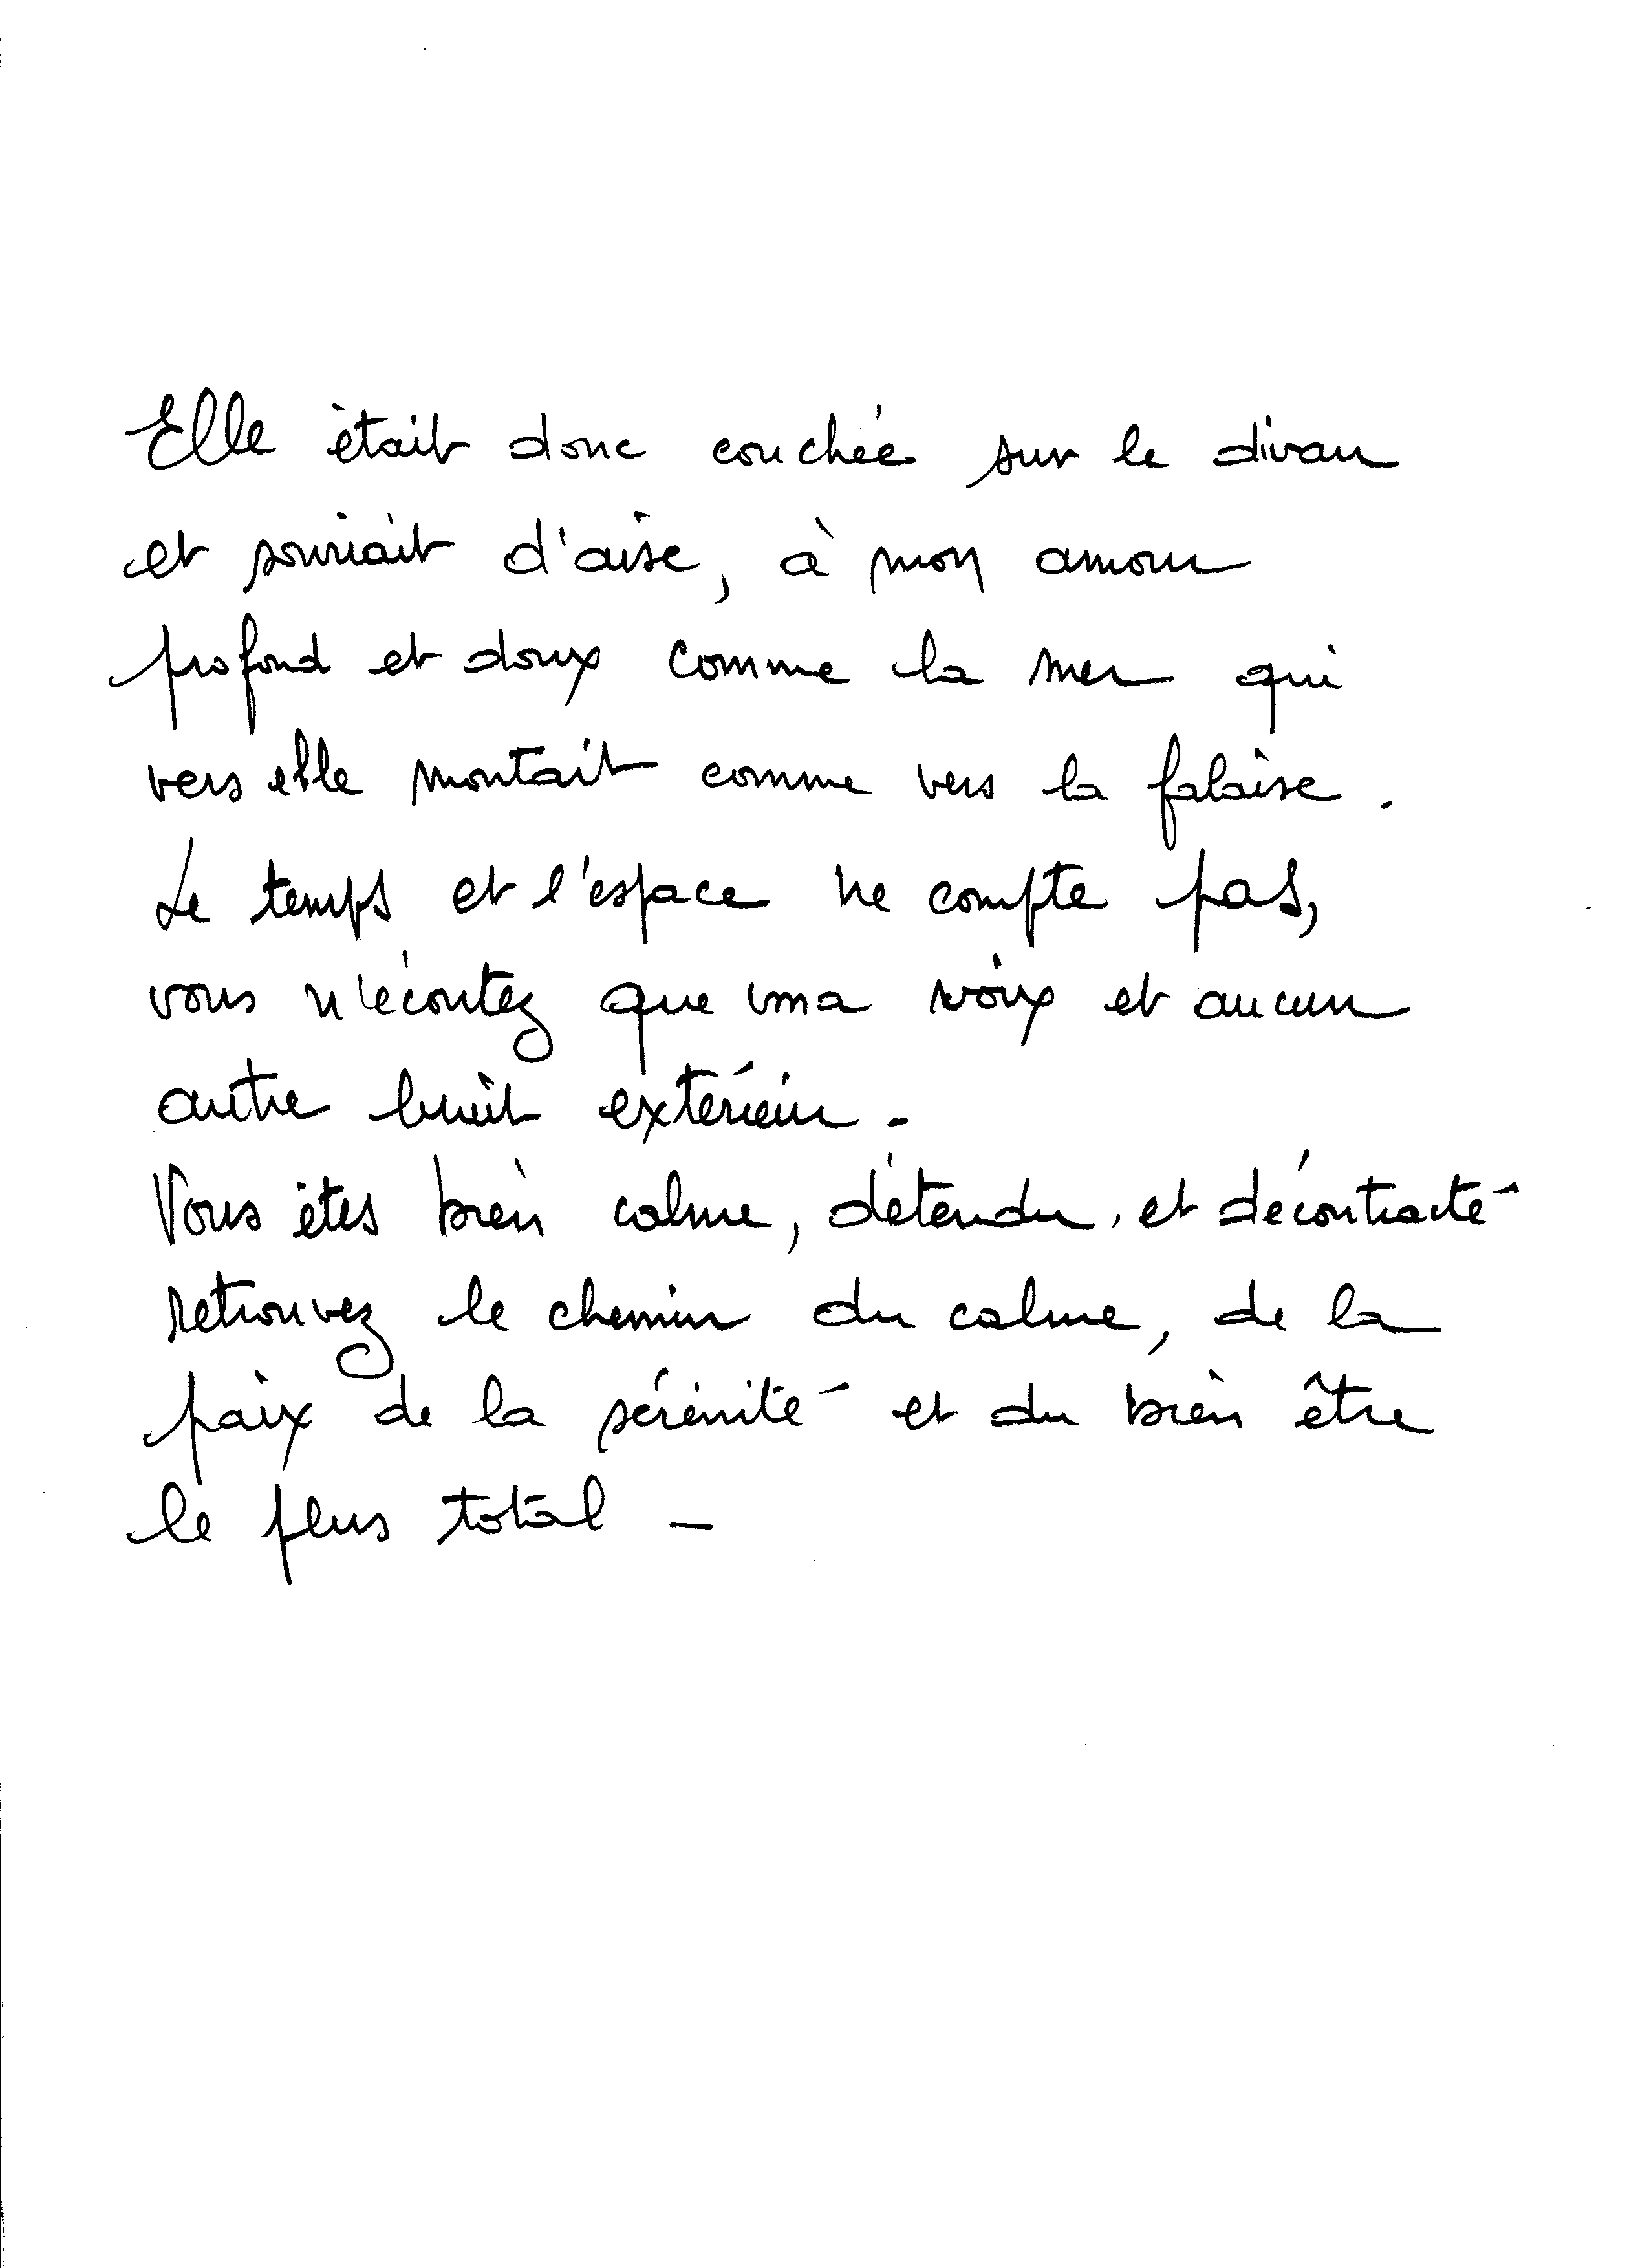 Elle était donc couchée sur le divan
et souriait d'aise, à mon amour
profond et doux comme la mer qui
vers elle montait comme vers la falaise.
Le temps et l'espace ne compte pas,
vous n'écoutez que ma voix et aucun
autre bruit extérieur.
Vous êtes bien calme, détendu, et décontracté
retrouvez le chemin du calme, de la
paix de la sérénité et du bien être
le plus total -